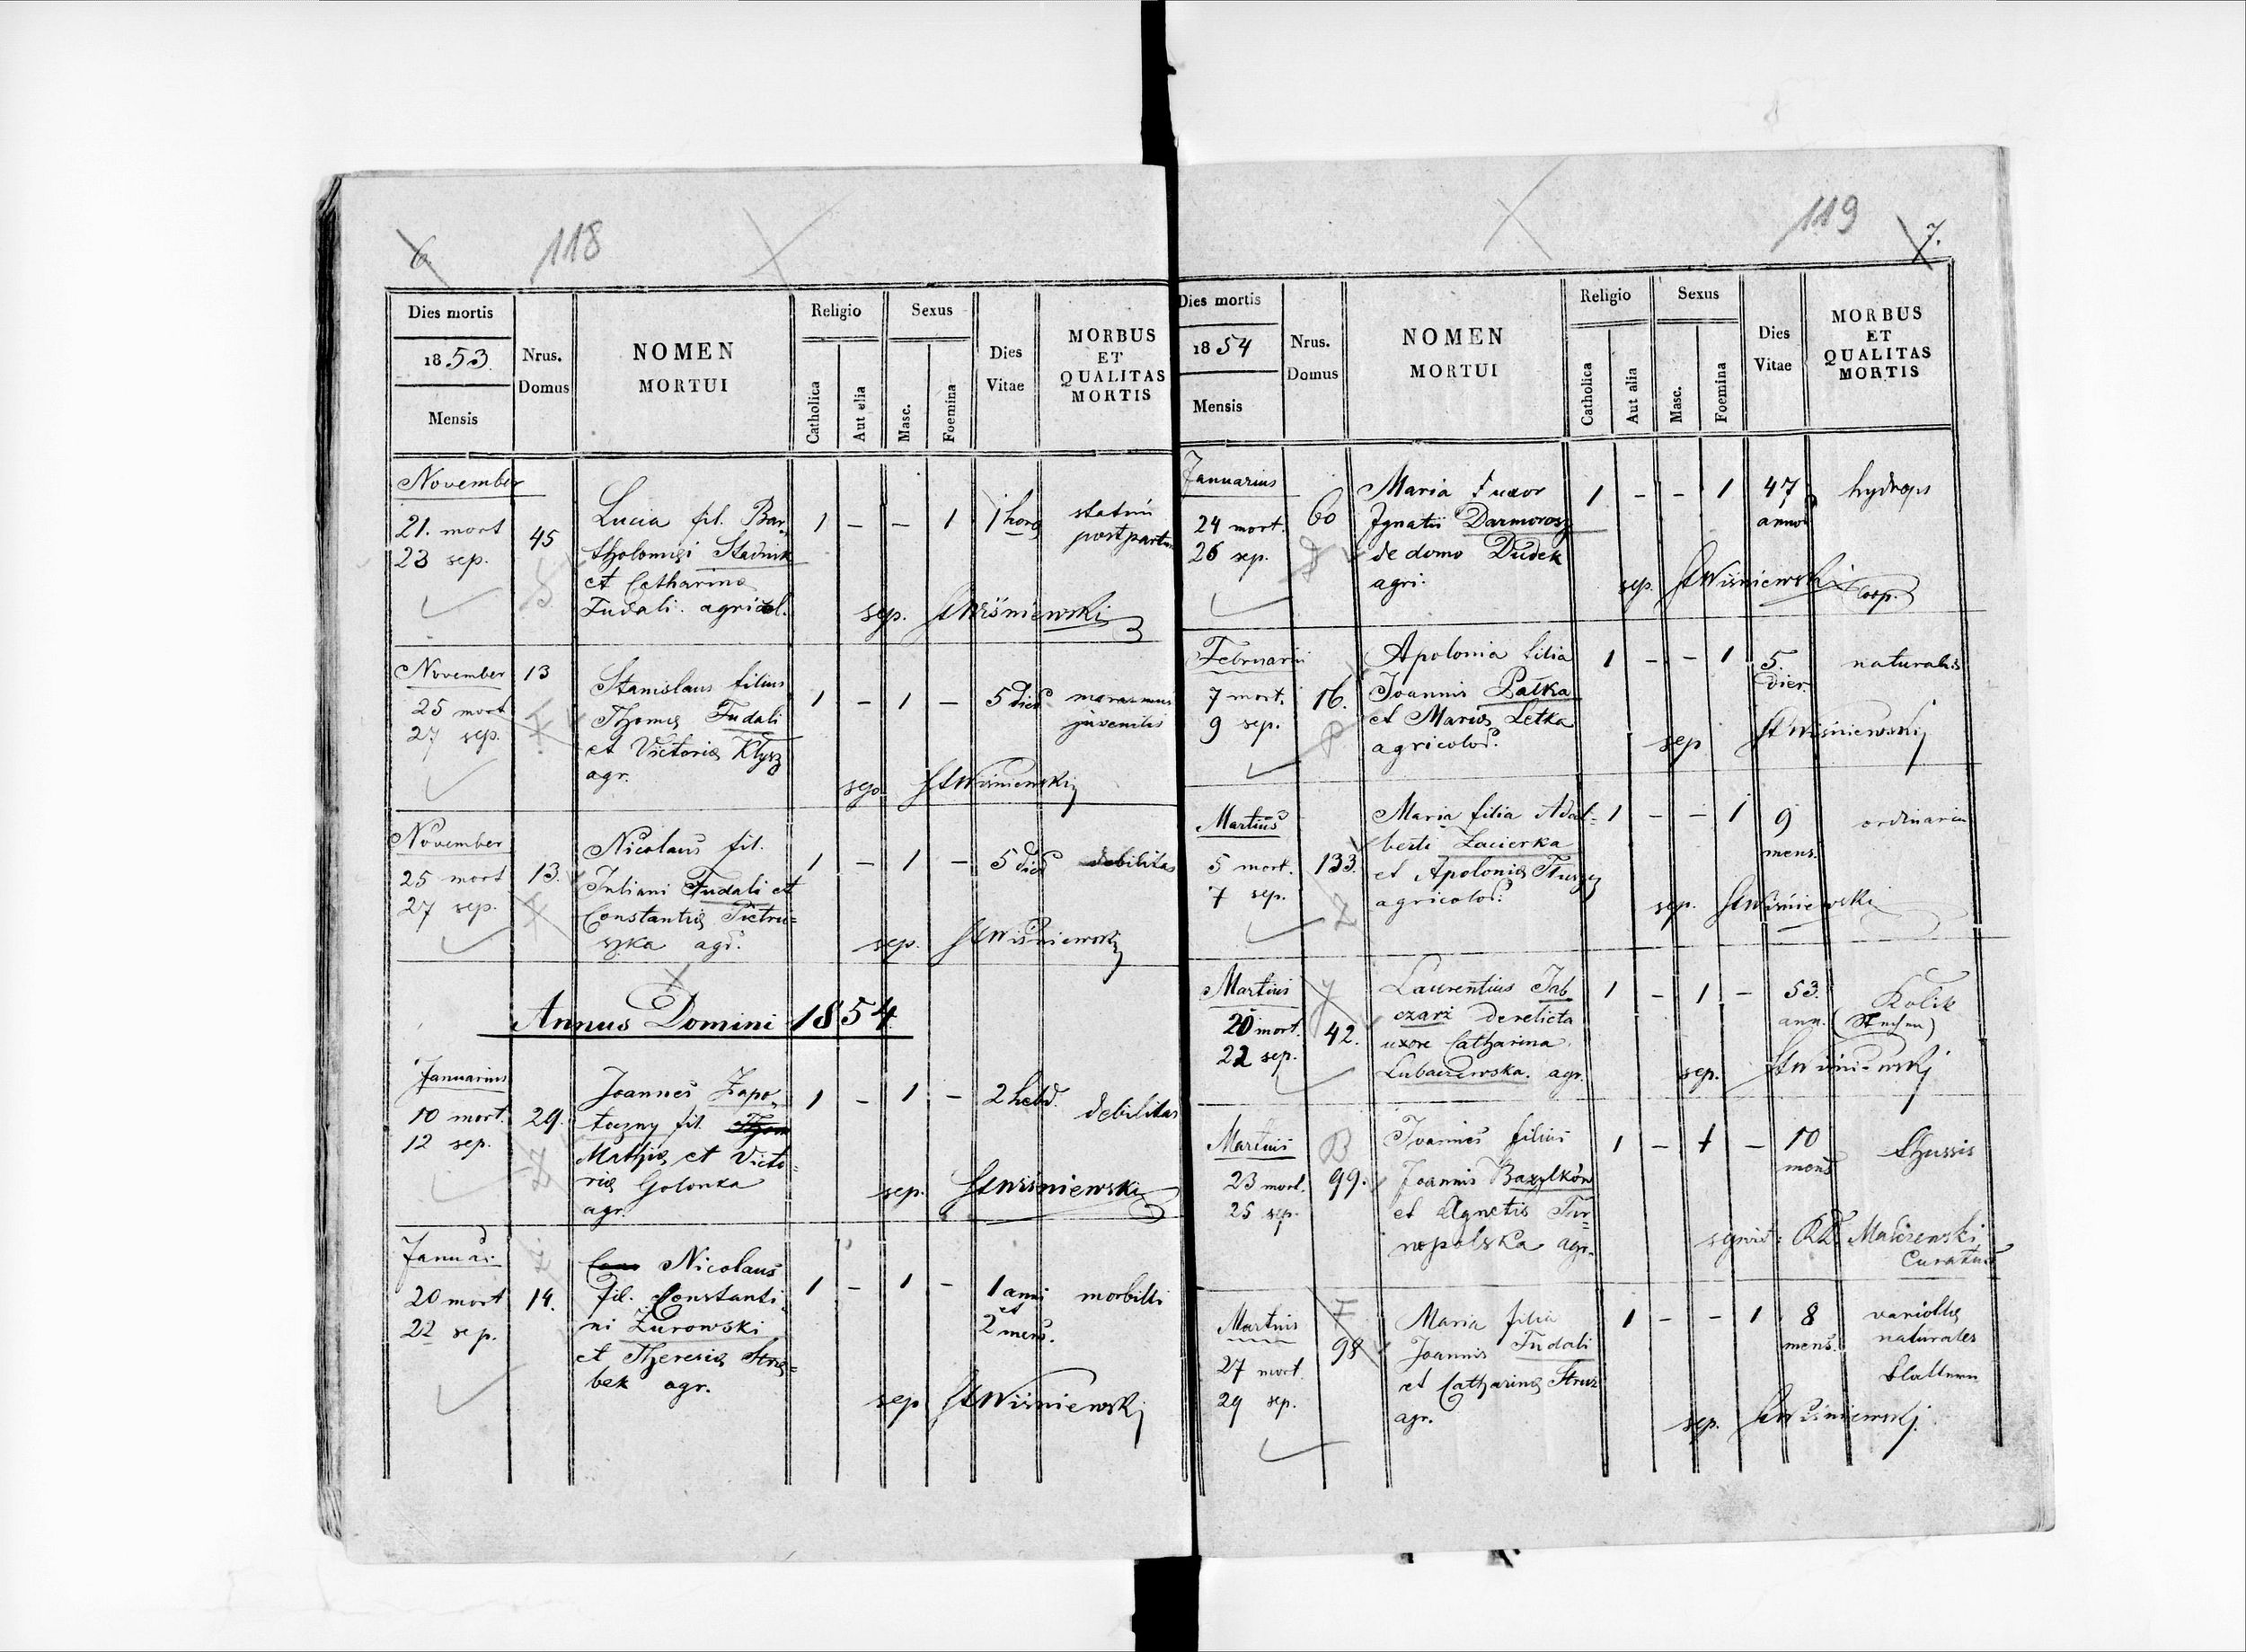 6.
118
Dies mortis
1853.
Mensis
Nrus.
Domus
NOMEN
MORTUI
Religio
Catholica
Aut alia
Sexus
Masc.
Foemina
Dies
Vitae
MORBUS
ET
QUALITAS
MORTIS
November
21. mort
23 sep.
45
Lucia fil. Bar-
tholomęi Stadnik
et Catharinę
Fudali. agricol.
1 - - 1
1 hora
statim
post partum
sep. StWiśniewski
November
25 mort
27 sep.
13
Stanislaus filius
Thomę Fudali
et Victorię Kłysz
agr.
1 - 1 -
5 dies
marasmus
juvenilis
sep. StWiśniewski
November
25 mort
27 sep.
13.
Nicolaus fil.
Juliani Fudali et
Constantię Pietru=
szka agr.
1 - 1 -
5 dies
debilitas
sep. StWiśniewski
Annus Domini 1854
Januarius
10 mort.
12 sep.
29.
Joannes Zapo-
toczny fil.
Mathię et Victo-
rię Golonka
agr.
1 - 1 -
2 hebd.
debilitas
sep. StWiśniewski
Januar.
20 mort
22 sep.
14.
Nicolaus
fil. Constanti-
ni Żurowski
et Theresię
bek agr.
1 - 1 -
1 anni
et
2 mens.
morbilli
sep StWiśniewski
119
7.
Dies mortis
1854
Mensis
Nrus.
Domus
NOMEN
MORTUI
Religio
Catholica
Aut alia
Sexus
Masc.
Foemina
Dies
Vitae
MORBUS
ET
QUALITAS
MORTIS
Januarius
24 mort.
26 sep.
60
Maria uxor
Ignatii Darmorosz
de domo Dudek
agri.
1 - - 1
47
annor
hydrops
sep. StWiśniewski Coop.
Februarii
7 mort.
9 sep.
16.
Apolonia filia
Joannis Pałka
et Marię Letka
agricolor.
1 - - 1
5.
dier.
naturalis
sep StWiśniewski
Martius
5 mort.
7 sep.
133.
Maria filia Adal=
berti Zacierka
et Apolonię
agricolor.
1 - - 1
9
mens.
ordinaria
sep. StWiśniewski
Martius
20 mort.
22 sep.
42.
Laurentius Tab
czarz derelicta
uxore Catharina
agr.
1 - 1 -
53.
ann.
Kolik
sep. StWiśniewski
Martius
23 mort.
25 sep.
99.
Joannes filius
Joannis Bazylków
et Agnetis Tur=
nopolska agr.
1 - 1 -
10
mens
thussis
RD.
Curatus
Martius
27 mort.
29 sep.
98
Maria filia
Joannis Fudali
et Catharinę Struz
agr.
1 - - 1
8
mens.
variollę
naturales
Blattern
sep. StWiśniewski